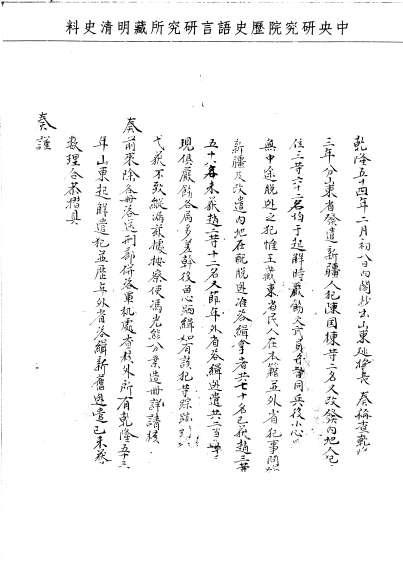 中央研究院歷史語言研究所藏明清史料
乾隆五十四年二月初八日內閣抄出山東巡撫長 奏稱查乾
三年分山東省發遣新疆人犯陳國棟等二名又改發內地人
住三等六十二名均于起解時嚴飭文武員弁督同兵役小心
無中途脫逃之犯惟王 東省民人在本籍並外省犯事問
新疆及改遣內地在配脫逃准咨緝拿者共七十名已獲趙三等
五十八名未獲趙二等十二名又節年外省咨緝逃遣共二
現俱嚴飭各屬多差幹役留心躧緝如有該犯等踪跡
弋獲不致縱漏茲據按察使馮光熊分業造冊詳請核
奏前來除各冊咨送刑部併咨軍機處查核外所有乾隆五十三
年山東起解遣犯並歷年外省咨緝新舊逃遣已未獲
數理合恭摺具
奏謹